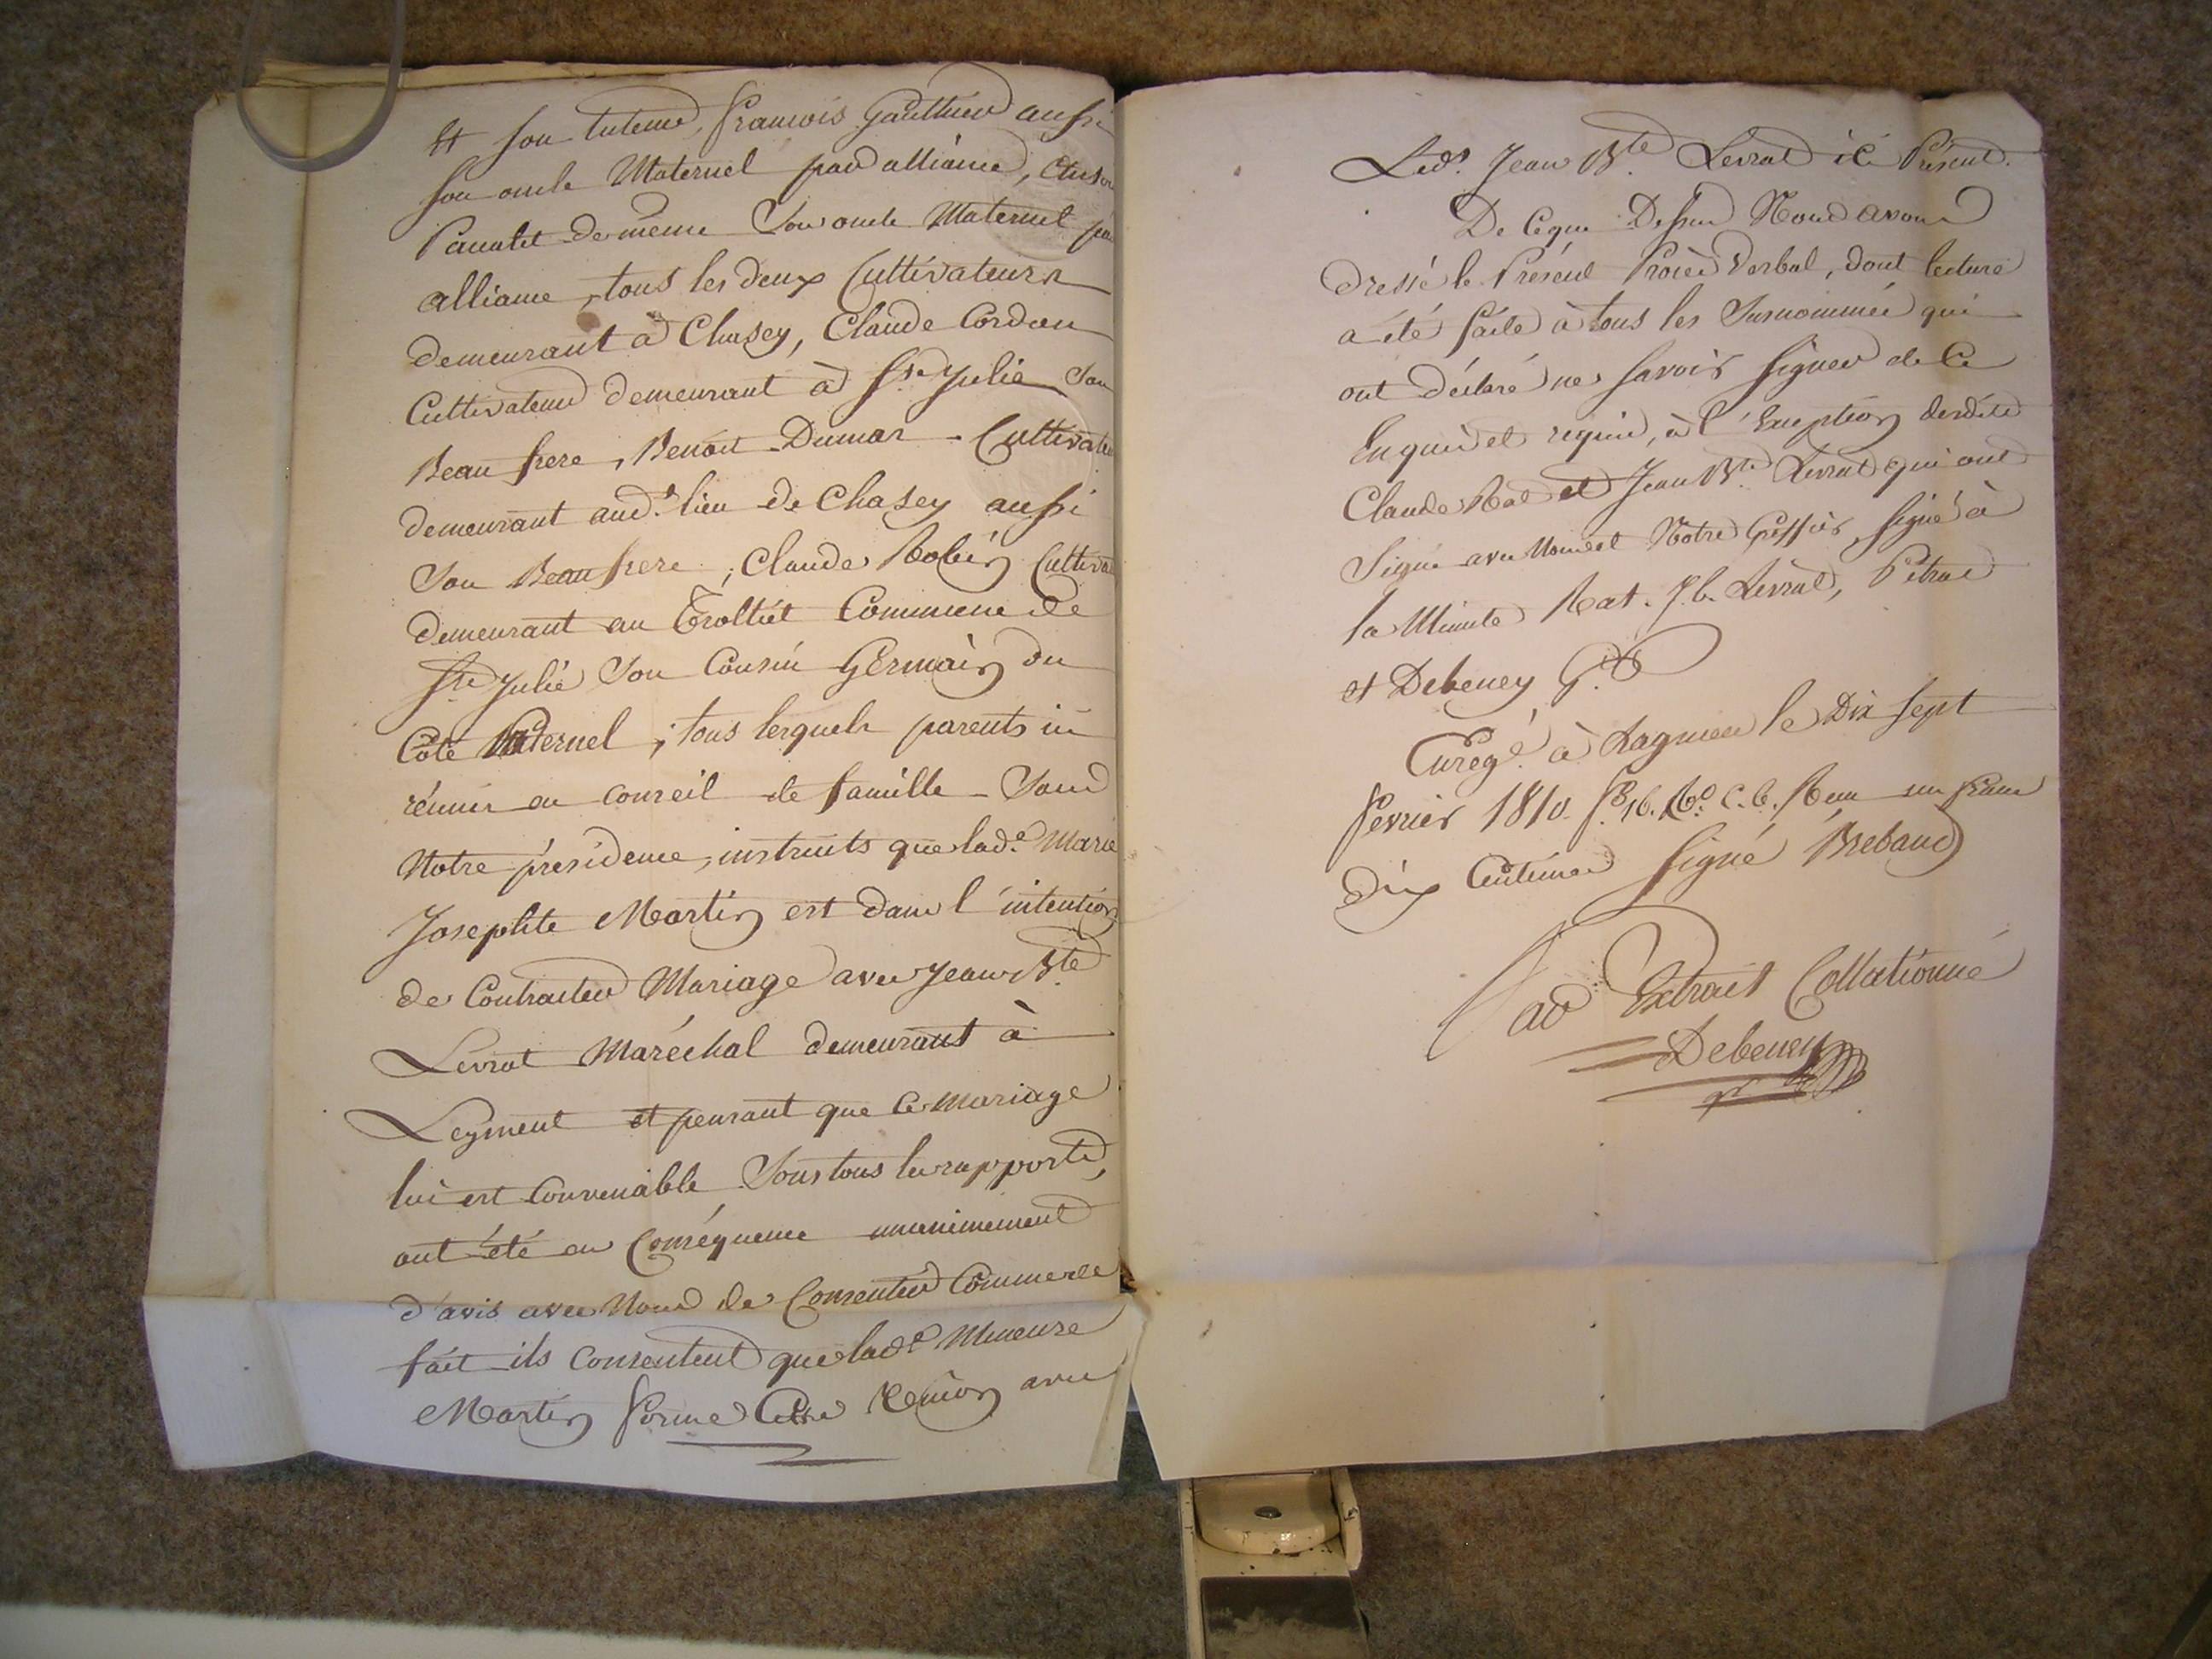 et son tuteur, francois Gauthier aussi
son oncle Maternel par alliance,
de même Son oncle Maternel par
alliance, tous les deux Cultivateurs
demeurant à Chasey, Claude Cordon
Cultivateur demeurant à Ste Julie Son
Beau frere, Benoit Dumas - Cultivateur
demeurant aud.t lieu de Chasey aussi
Son Beau frere, Claude Robin Cultiva
demeurant au Trolliet Commune de
Ste Julie Son Cousin Germain du
Côté Paternel, tous lesquels parents ici
réunis en conseil de famille - Sous
Notre présidence, instruits que lad.e Marie
Josephte Martin est dans l'intention
de Contracter Mariage avec Jean Bte
Levrat Maréchal demeurant à
Leyment et pensant que Ce mariage
lui est Convenable Sous tous les rapports,
ont été en Conséquence unanimement
d'avis avec Nous de Consentir Comme de
fait ils Consentent que lad.e Mineure
Martin forme Cette Union avec
Led.t Jean Bte Levrat ici Présent.
De Ce que Dessus Nous avons
dressé le Présent Procès Verbal, dont lecture
a été faite à tous les Surnommés qui
ont déclaré ne savoir signer de Ce
Enquis et requis, à l'Exeption desdits
Claude Rat et Jean Bte Levrat qui ont
Signé avec Nous et Notre Greffier, signé à
la Minute Rat. J.b. Levrat,
et Debeney G.er
Enreg.é à Lagnieu le Dix sept
fevrier 1810. f.o 16. R.o C. 6. Reçu un franc
dix Centimes Signé Brebaud
Par Extrait Collationné
Debeney
gr